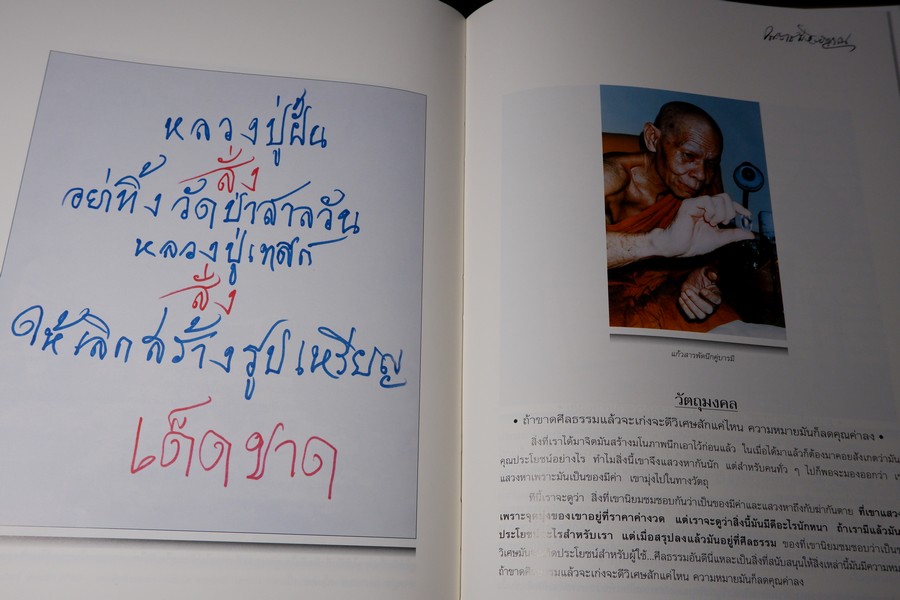 หลวงปู่ฝั้น
สั่ง
อย่าทิ้ง วัดป่าสาลวัน
หลวงปู่เทสก์
สั่ง
ให้เลิกสร้างรูปเหรียญ
เด็ดขาด
แก้วสารพัดนึกคู่บารมี
วัตถุมงคล
• ถ้าขาดศีลธรรมแล้วจะเก่งจะดีวิเศษสักแค่ไหน ความหมายมันก็ลดคุณค่าลง •
สิ่งที่เราได้มาจิตมันสร้างมโนภาพนึกเอาไว้ก่อนแล้ว ในเมื่อได้มาแล้วก็ต้องมาคอยสังเกตว่ามัน
คุณประโยชน์อย่างไร ทำไมสิ่งนี้เขาจึงแสวงหากันนัก แต่สำหรับคนทั่ว ๆ ไปก็พอจะมองออกว่า
แสวงหาเพราะมันเป็นของมีค่า เขามุ่งไปในทางวัตถุ
ทีนี้เราจะดูว่า สิ่งที่เขานิยมชมชอบกันว่าเป็นของมีค่าและแสวงหาถึงกับฆ่ากันตาย ที่เขาแสวง
เพราะจุดมุ่งของเขาอยู่ที่ราคาค่างวด แต่เราจะดูว่าสิ่งนี้มันมีดีอะไรนักหนา ถ้าเรามีแล้วมัน
ประโยชน์อะไรสำหรับเรา แต่เมื่อสรุปลงแล้วมันอยู่ที่ศีลธรรม ของที่เขานิยมชมชอบว่าเป็น
วิเศษมัน ประโยชน์สำหรับผู้ใช้...ศีลธรรมอันดีนี่แหละเป็นสิ่งที่สนับสนุนให้สิ่งเหล่านี้มันมีความ
ถ้าขาดศีลธรรมแล้วจะเก่งจะดีวิเศษสักแค่ไหน ความหมายมันก็ลดคุณค่าลง